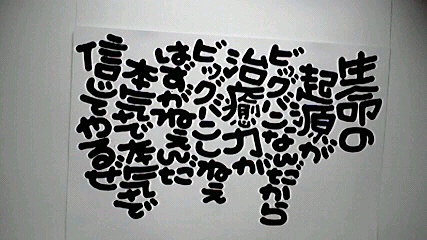 生命の
起源が
ビックバンなんだから
治癒力が
ビックバンしねぇ
はずがねえんだ
本気で本気で
信じてやるぜ